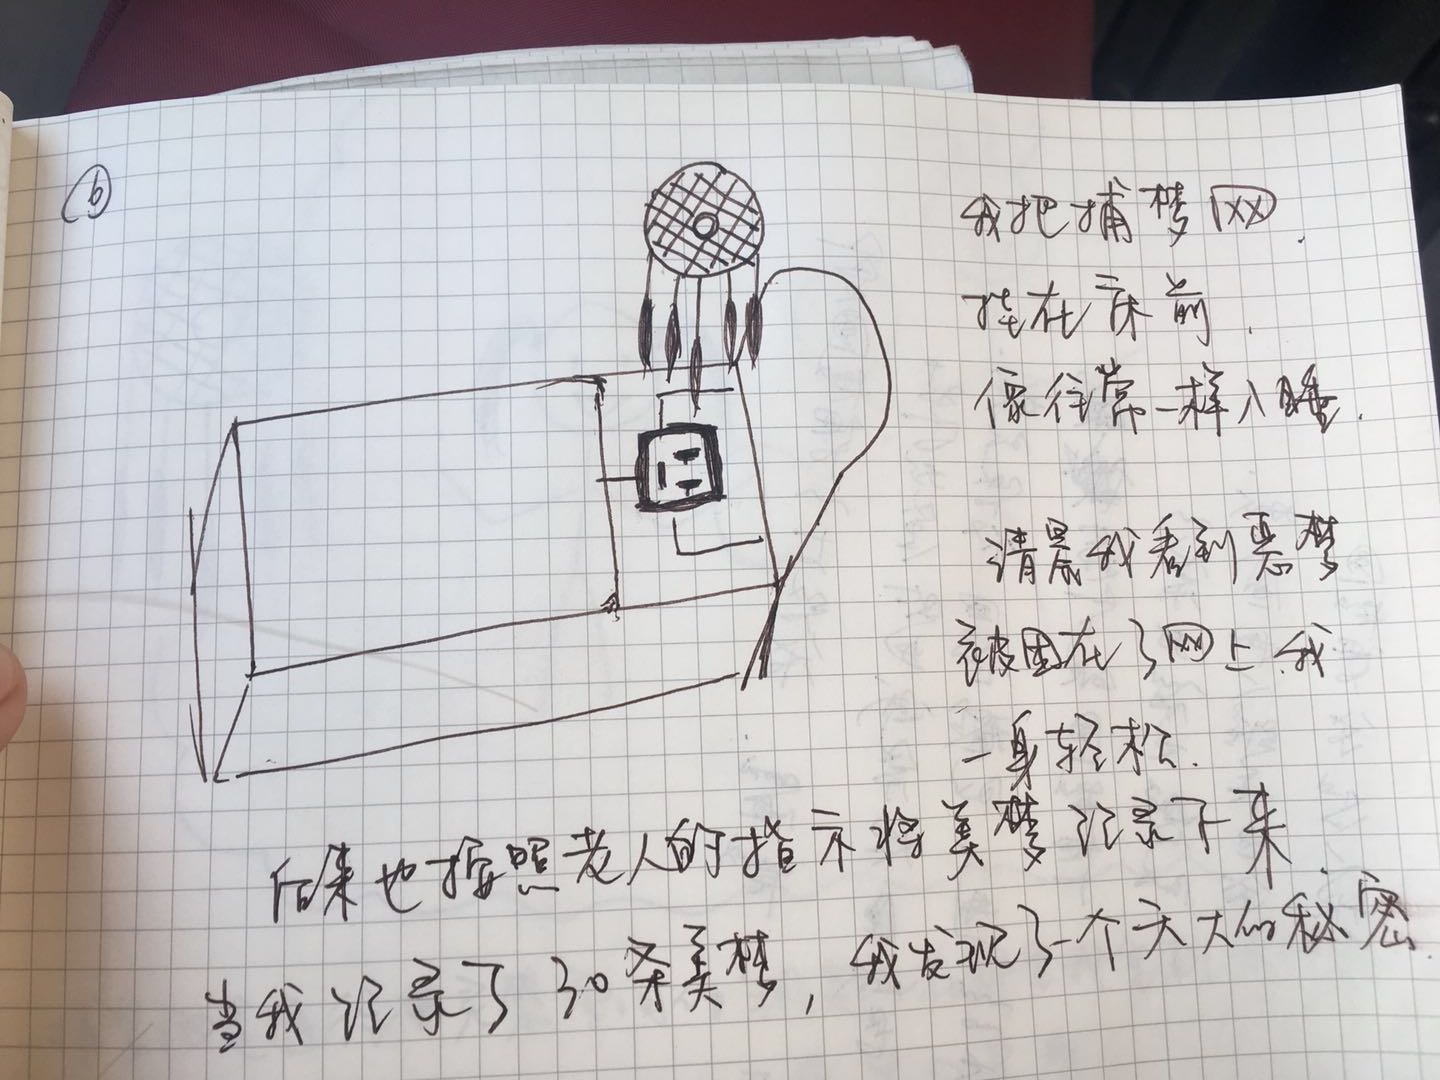 6
我把捕梦网.
挂在床前.
像往常一样入睡.
清晨我看到恶梦
被困在了网上.我
一身轻松.
后来也按照老人的指示将美梦记录下来.
当我记录了30条美梦,我发现了一个天大的秘密.